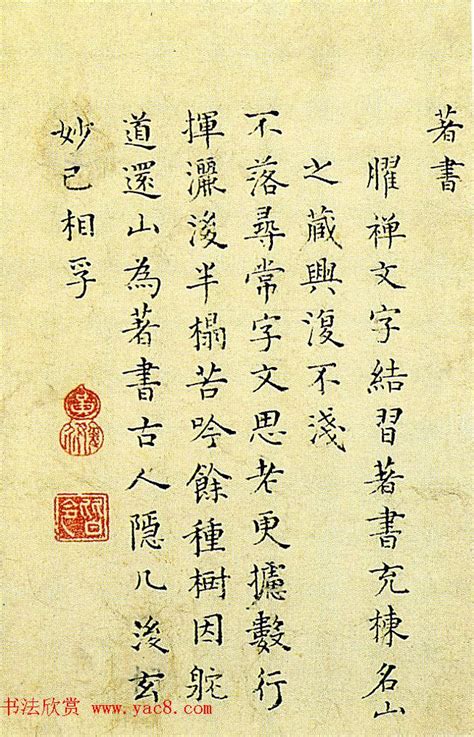 著書
臞禅文字結習著書充棟名山
之藏興復不淺
不落尋常字文思老更攄數行
揮灑後半榻苦吟餘種樹因
道還山為著書古人隱几後玄
妙已相孚
书法欣赏 www.yac8.com